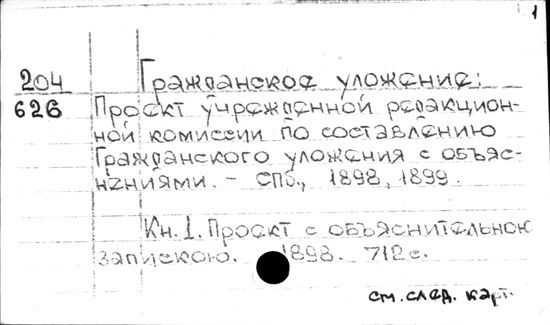 1
204 Гражданское уложение:
626 Проект учрежденной редакцион-
ной комиссии по составлению
Гражданского уложения с объяс-
нениями. - СПб., 1898, 1899.
Кн. I. Проект с объяснительною
запискою. 1898. 712 с.
см. след. карт.